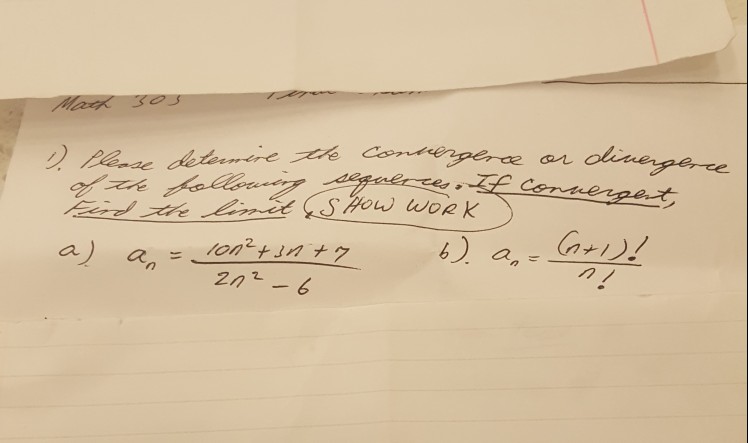 Math 303
1). Please determine the convergence or divergence
of the following sequences. If convergent,
Find the limit, SHOW WORK
a) aₙ = (10n² + 3n + 7)/(2n² - 6) b). aₙ = (n+1)!/n!